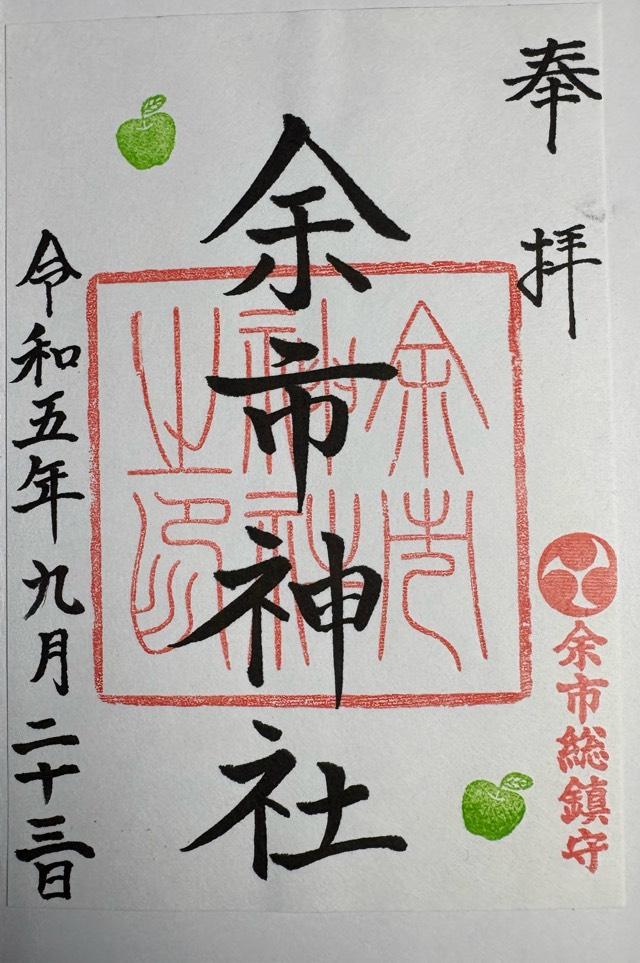 奉拝
余市総鎮守
余市神社
余市神社之印
令和五年九月二十三日